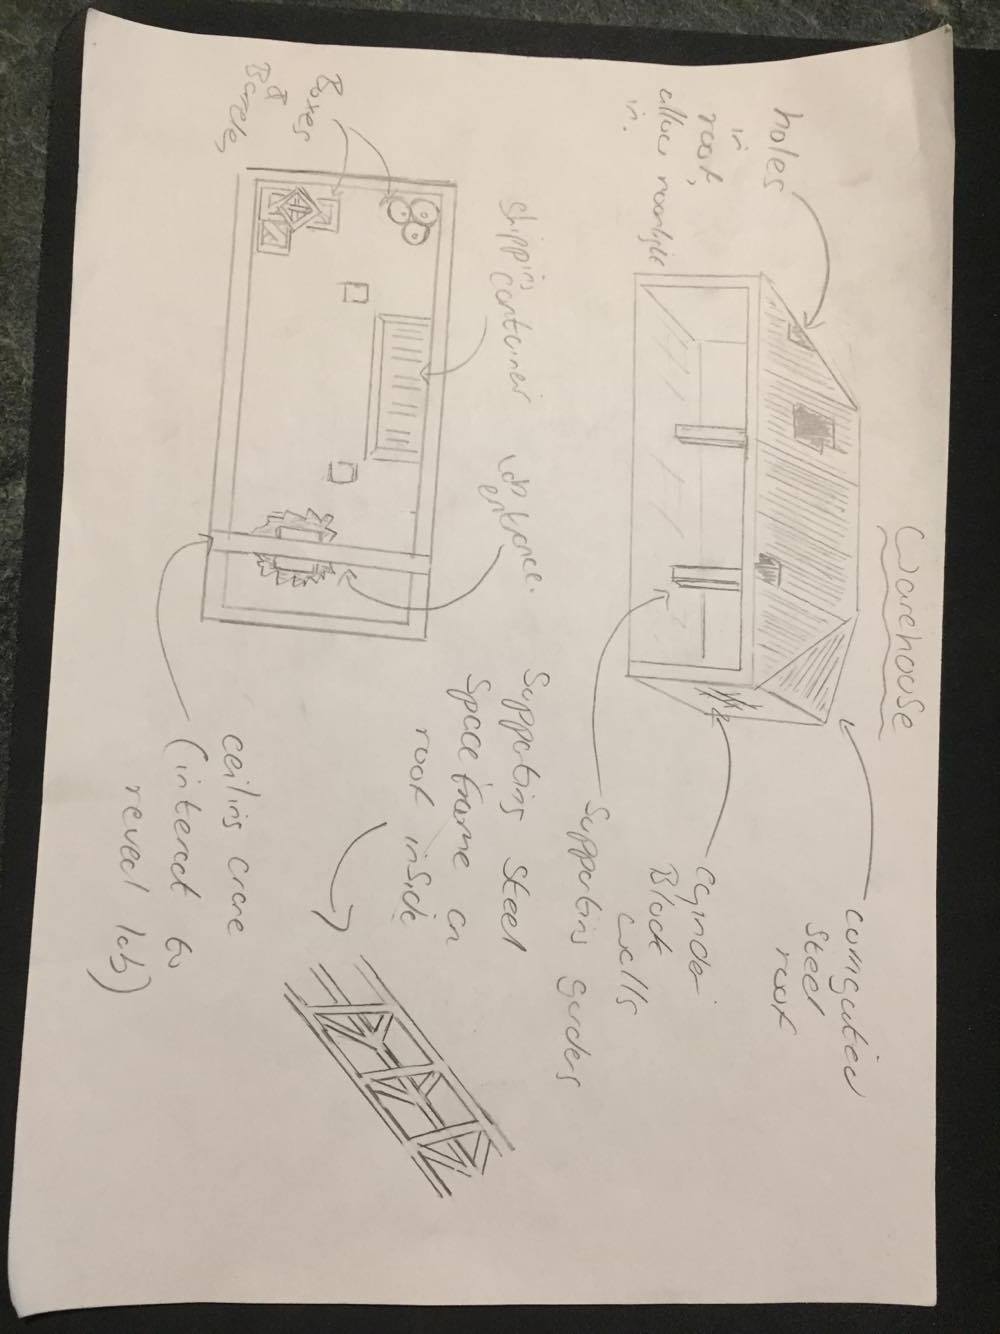 Warehouse
holes
in
roof,
allow moonlight
in.
corrugated
steel
roof
cynder
Block
walls
Supporting Girders
Shipping
container
lab
entrance.
Boxes
&
Barrels
Supporting Steel
Space frame on
roof inside
ceiling crane
(interact to
reveal lab)